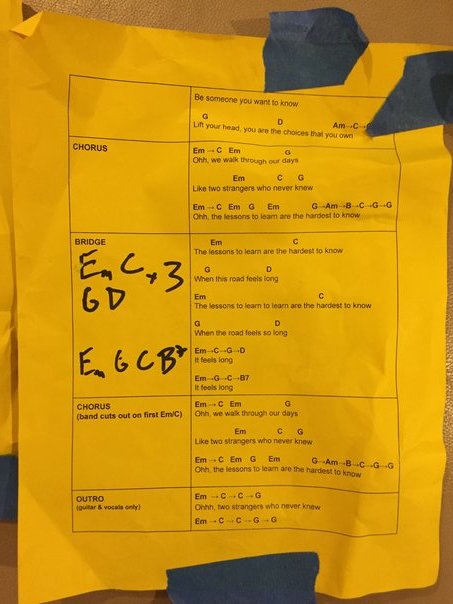 Be someone you want to know
G D Am→C→
Lift your head, you are the choices that you own
CHORUS
Em → C Em G
Ohh, we walk through our days
Em C G
Like two strangers who never knew
Em → C Em G Em G→Am→B→C→G→G
Ohh, the lessons to learn are the hardest to know
BRIDGE
Em C
The lessons to learn are the hardest to know
Em C x3
G D
G D
When this road feels long
Em C
The lessons to learn to learn are the hardest to know
G D
When the road feels so long
Em G C B7
Em→C→G→D
It feels long
Em→G→C→B7
It feels long
CHORUS
(band cuts out on first Em/C)
Em → C Em G
Ohh, we walk through our days
Em C G
Like two strangers who never knew
Em → C Em G Em G→Am→B→C→G→G
Ohh, the lessons to learn are the hardest to know
OUTRO
(guitar & vocals only)
Em → C → C → G
Ohhh, two strangers who never knew
Em → C → C → G → G